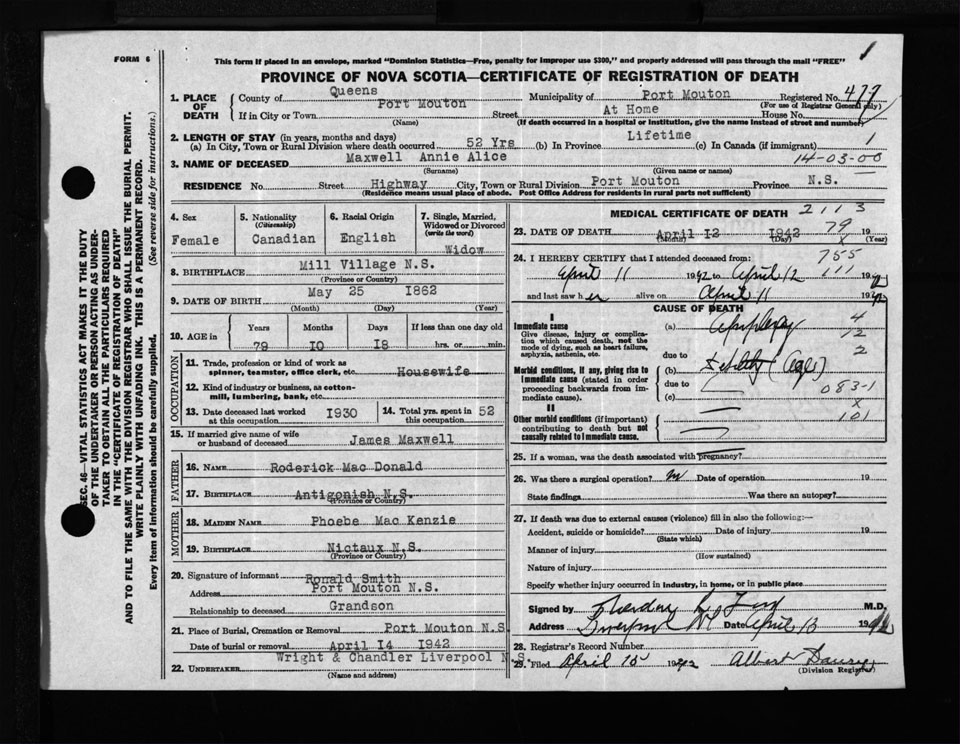 FORM 6
This form if placed in an envelope, marked "Dominion Statistics—Free, penalty for improper use $300," and properly addressed will pass through the mail "FREE"
1
PROVINCE OF NOVA SCOTIA—CERTIFICATE OF REGISTRATION OF DEATH
SEC. 46—VITAL STATISTICS ACT MAKES IT THE DUTY
OF THE UNDERTAKER OR PERSON ACTING AS UNDER-
TAKER TO OBTAIN ALL THE PARTICULARS REQUIRED
IN THE "CERTIFICATE OF REGISTRATION OF DEATH"
AND TO FILE THE SAME WITH THE DIVISION REGISTRAR WHO SHALL ISSUE THE BURIAL PERMIT.
WRITE PLAINLY WITH UNFADING INK. THIS IS A PERMANENT RECORD.
Every item of information should be carefully supplied. (See reverse side for instructions.)
1. PLACE OF DEATH County of Queens Municipality of Port Mouton Registered No. 477
(For use of Registrar General only)
If in City or Town Port Mouton Street At Home House No.
(Name) (If death occurred in a hospital or institution, give the name instead of street and number)
2. LENGTH OF STAY (in years, months and days)
(a) In City, Town or Rural Division where death occurred 52 Yrs (b) In Province Lifetime (c) In Canada (if immigrant) 1
3. NAME OF DECEASED Maxwell Annie Alice 14-03-00
(Surname) (Given name or names)
RESIDENCE No. Street Highway City, Town or Rural Division Port Mouton Province N.S.
(Residence means usual place of abode. Post Office Address for residents in rural parts not sufficient)
4. Sex
Female
5. Nationality
(Citizenship)
Canadian
6. Racial Origin
English
7. Single, Married,
Widowed or Divorced
(write the word)
Widow
8. BIRTHPLACE Mill Village N.S.
(Province or Country)
9. DATE OF BIRTH May 25 1862
(Month) (Day) (Year)
10. AGE in Years Months Days If less than one day old
79 10 18 hrs. or min.
OCCUPATION
11. Trade, profession or kind of work as
spinner, teamster, office clerk, etc. Housewife
12. Kind of industry or business, as cotton-
mill, lumbering, bank, etc.
13. Date deceased last worked
at this occupation 1930
14. Total yrs. spent in
this occupation 52
15. If married give name of wife
or husband of deceased James Maxwell
FATHER
16. NAME Roderick Mac Donald
17. BIRTHPLACE Antigonish N.S.
(Province or Country)
MOTHER
18. MAIDEN NAME Phoebe Mac Kenzie
19. BIRTHPLACE Nictaux N.S.
(Province or Country)
20. Signature of informant Ronald Smith
Address Port Mouton N.S.
Relationship to deceased Grandson
21. Place of Burial, Cremation or Removal Port Mouton N.S.
Date of burial or removal April 14 1942
22. UNDERTAKER Wright & Chandler Liverpool N.S.
(Name and address)
MEDICAL CERTIFICATE OF DEATH 2113
23. DATE OF DEATH April 12 1942 79 19
(Month) (Day) x (Year)
24. I HEREBY CERTIFY that I attended deceased from: 755
April 11 1942 to April 12 111 1942
and last saw her alive on April 11 1942
CAUSE OF DEATH
I
Immediate cause
Give disease, injury or complica-
tion which caused death, not the
mode of dying, such as heart failure,
asphyxia, asthenia, etc.
(a) Apoplexy 4
12
due to 2
Morbid conditions, if any, giving rise to
immediate cause (stated in order
proceeding backwards from im-
mediate cause).
(b) (Age)
due to 083-1
(c) x
II
Other morbid conditions (if important)
contributing to death but not
causally related to immediate cause.
101
25. If a woman, was the death associated with pregnancy?
26. Was there a surgical operation? No Date of operation 19
State findings Was there an autopsy?
27. If death was due to external causes (violence) fill in also the following:—
Accident, suicide or homicide? Date of injury 19
(State which)
Manner of injury
(How sustained)
Nature of injury
Specify whether injury occurred in industry, in home, or in public place
Signed by M.D.
Address Liverpool NS Date April 13 1942
28. Registrar's Record Number
29. Filed April 15 1942 Albert
(Division Registrar)